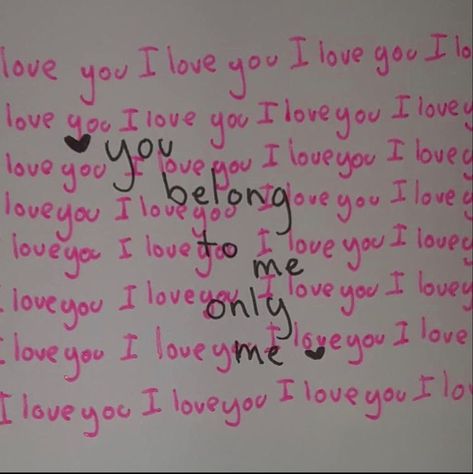 love you I love you I love you I lo
love you I love you I love you I love y
love you I love you I love you I love
love you I love you I love you I love
love you I love you I love you I love
I love you I love you I love you I love y
I love you I love you I love you I love
I love you I love you I love you I lo
♥ you
belong
to
me
only
me ♥